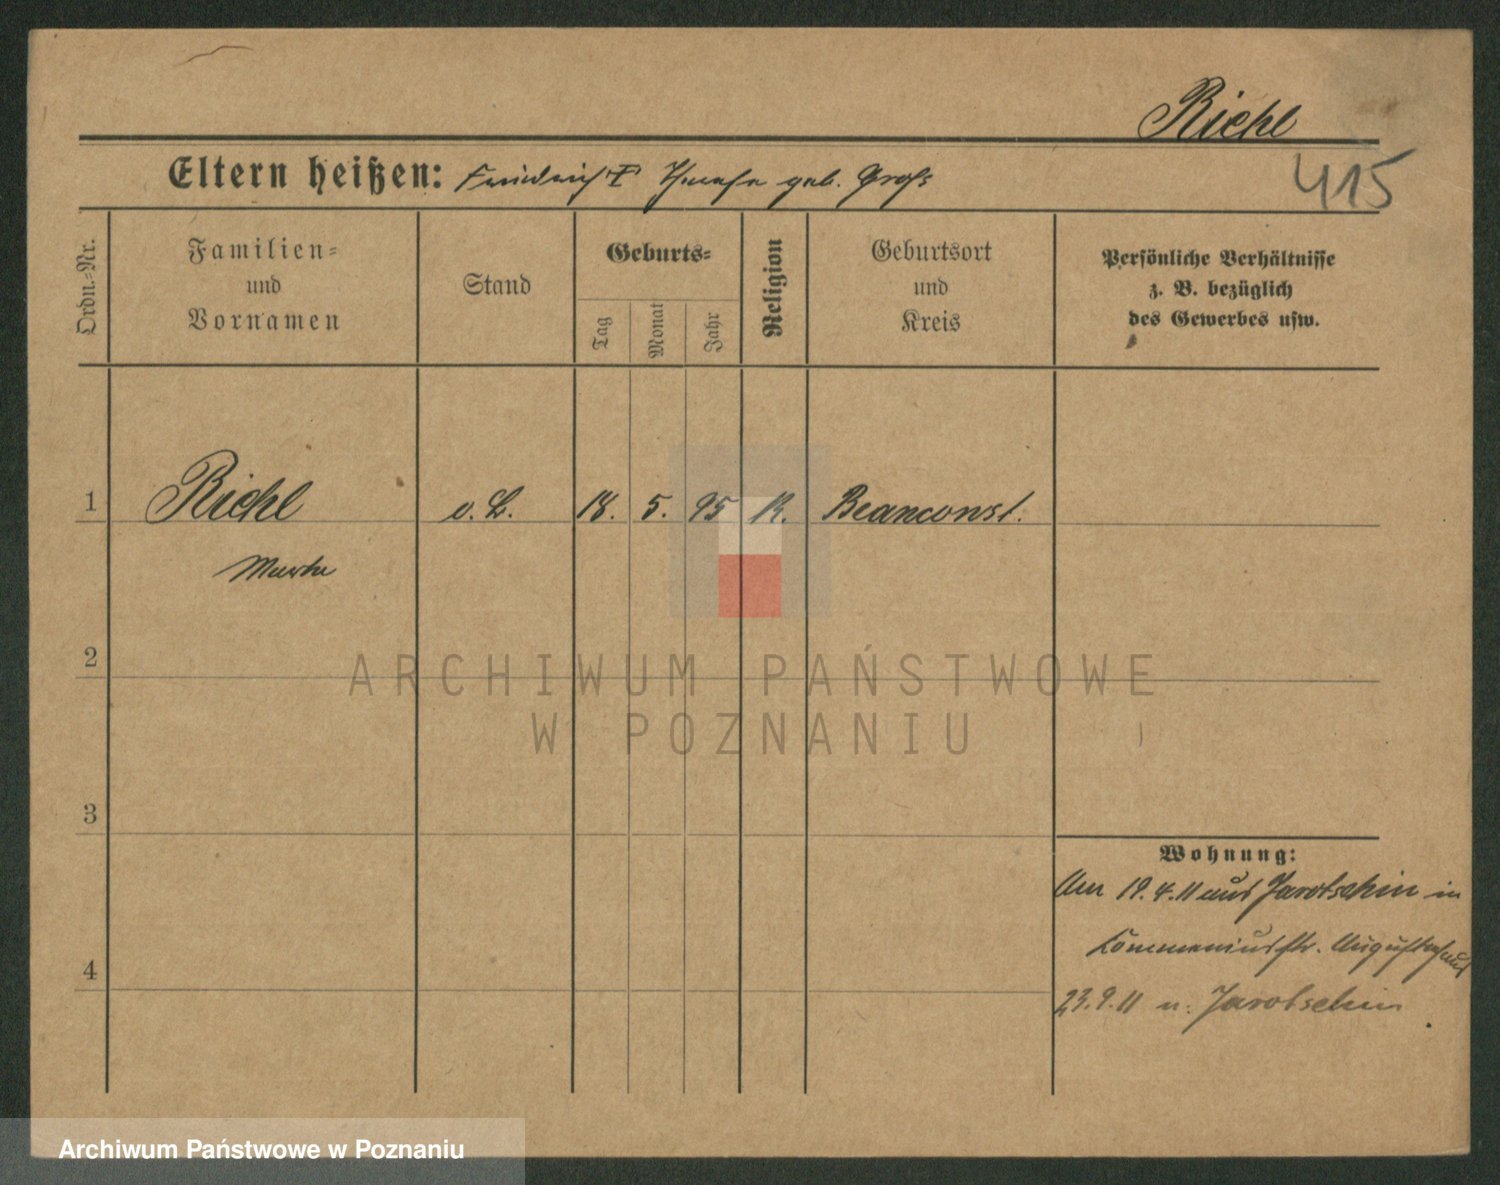 Riehl
415
Eltern heißen: Friedrich † Therese geb. Groß
Ordn.-Nr.
Familien-
und
Vornamen
Stand
Geburts-
Tag
Monat
Jahr
Religion
Geburtsort
und
Kreis
Persönliche Verhältnisse
z. B. bezüglich
des Gewerbes usw.
1 Riehl o. B. 18. 5. 95 K.
Martha
2
3
4
Wohnung:
Am 19.4.11 aus Jarotschin in
Commeniusstr. Augustahaus
23.9.11 n. Jarotschin
ARCHIWUM PAŃSTWOWE
W POZNANIU
Archiwum Państwowe w Poznaniu